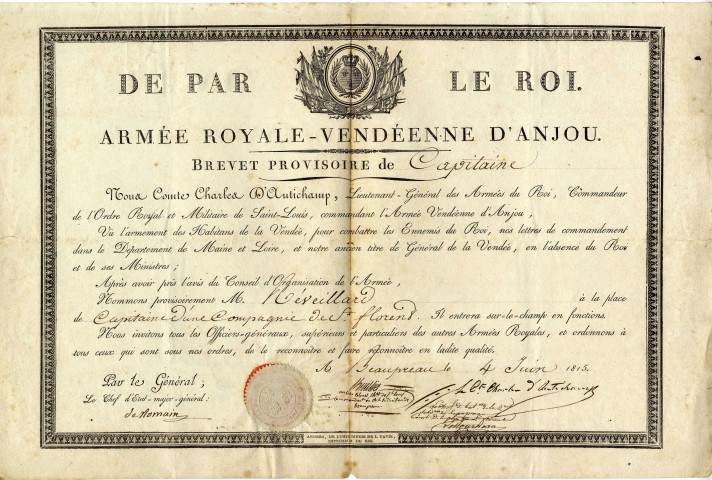 DE PAR LE ROI.
ARMÉE ROYALE-VENDÉENNE D'ANJOU.
BREVET PROVISOIRE de Capitaine
Nous Comte Charles D'Autichamp, Lieutenant-Général des Armées du Roi, Commandeur
de l'Ordre Royal et Militaire de Saint-Louis, commandant l'Armée Vendéenne d'Anjou,
Vu l'armement des Habitans de la Vendée, pour combattre les Ennemis du Roi, nos lettres de commandement
dans le Département de Maine et Loire, et notre ancien titre de Général de la Vendée, en l'absence du Roi
et de ses Ministres;
Après avoir pris l'avis du Conseil d'Organisation de l'Armée,
Nommons provisoirement M. Réveillard à la place
de Capitaine d'une Compagnie de St florent. Il entrera sur-le-champ en fonctions.
Nous invitons tous les Officiers-généraux, supérieurs et particuliers des autres Armées Royales, et ordonnons à
tous ceux qui sont sous nos ordres, de le reconnoître et faire reconnoître en ladite qualité.
A Beaupreau le 4 Juin 1815.
Par le Général;
Le Chef d'État-major-général:
de Romain
le Cte Charles d'Autichamp
ANGERS, DE L'IMPRIMERIE DE L. PAVIE,
IMPRIMEUR DU ROI.